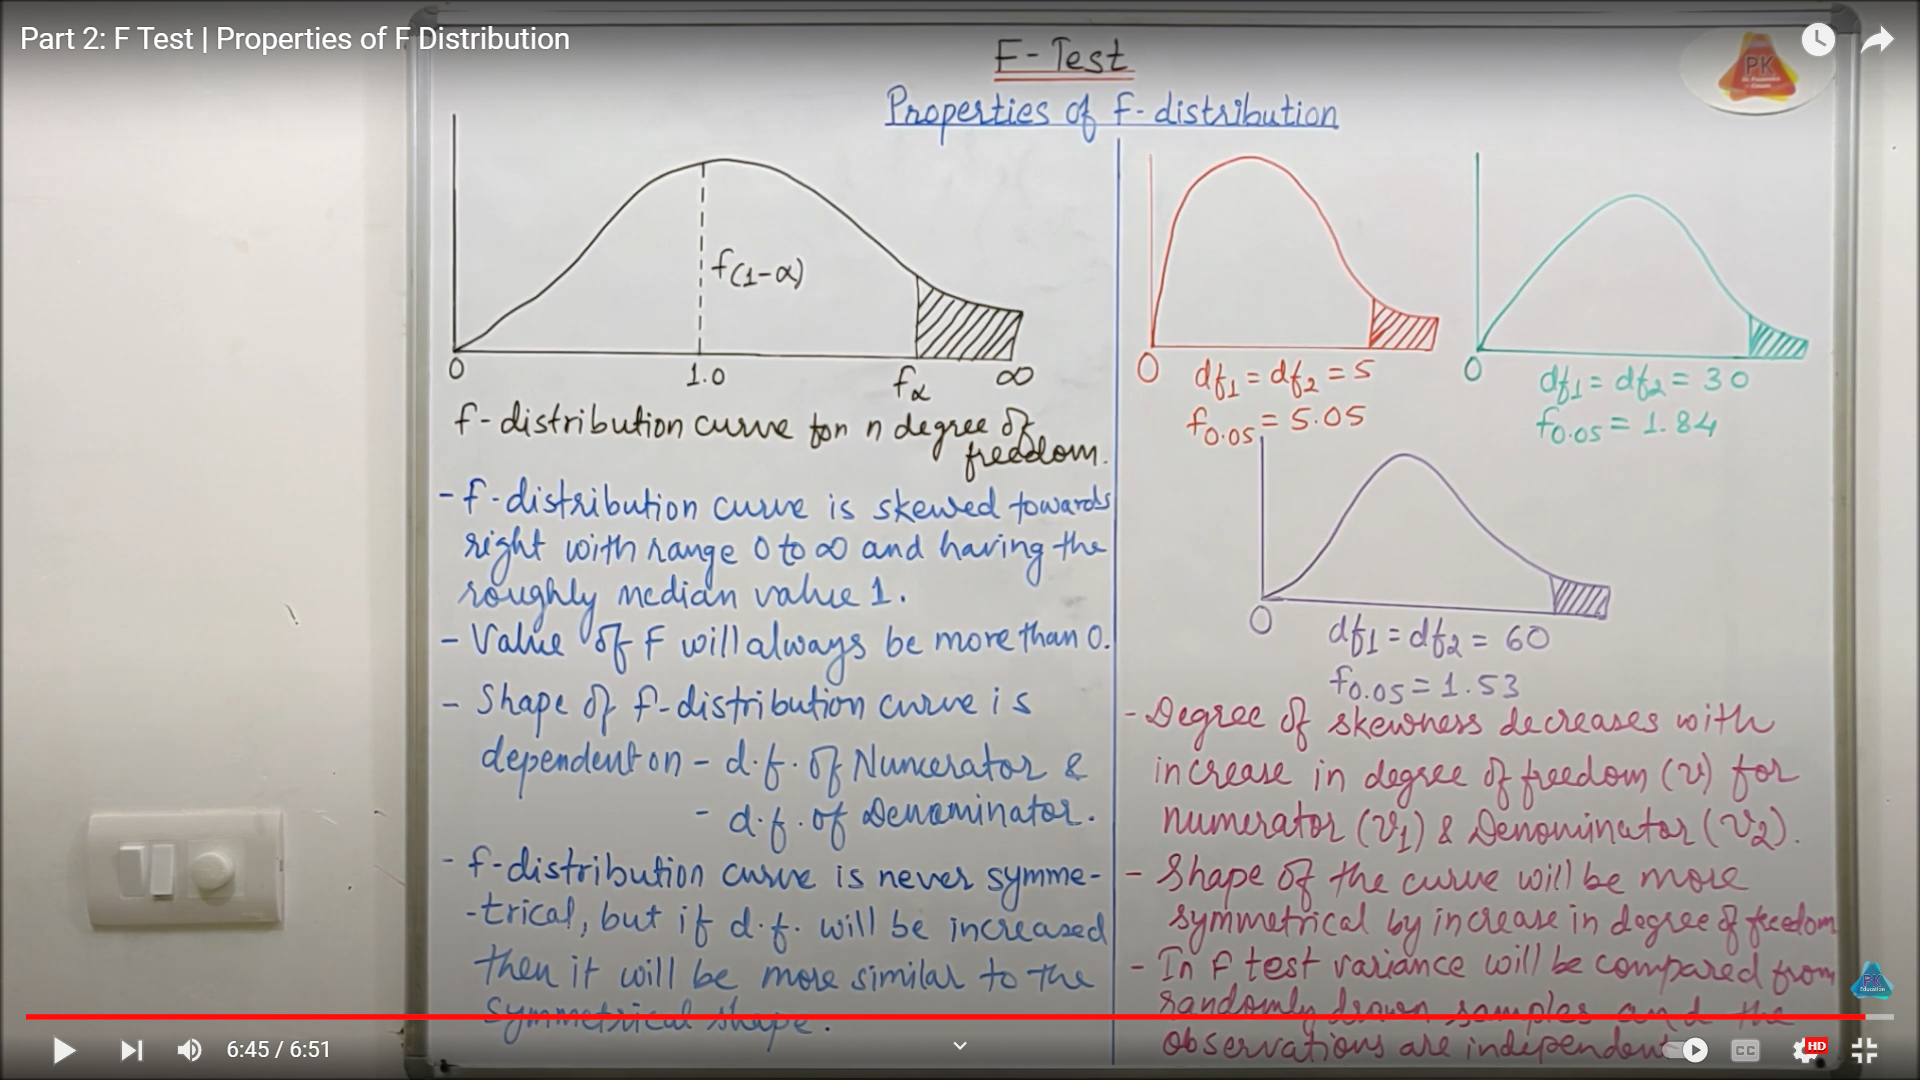 Part 2: F Test | Properties of F Distribution
F-Test
Properties of f-distribution
PK
f(1-α)
0
1.0
fα
∞
f-distribution curve for n degree of
freedom.
- f-distribution curve is skewed towards
right with range 0 to ∞ and having the
roughly median value 1.
- Value of F will always be more than 0.
- Shape of f-distribution curve is
dependent on - d.f. of Numerator &
- d.f. of Denominator.
- f-distribution curve is never symme-
-trical, but if d.f. will be increased
then it will be more similar to the
symmetrical shape.
0
df1 = df2 = 5
f0.05 = 5.05
0
df1 = df2 = 30
f0.05 = 1.84
0
df1 = df2 = 60
f0.05 = 1.53
- Degree of skewness decreases with
increase in degree of freedom (v) for
numerator (v1) & Denominator (v2).
- Shape of the curve will be more
symmetrical by increase in degree of freedom
- In F test variance will be compared from
randomly drawn samples and the
observations are independent
PK
Education
6:45 / 6:51
CC
HD